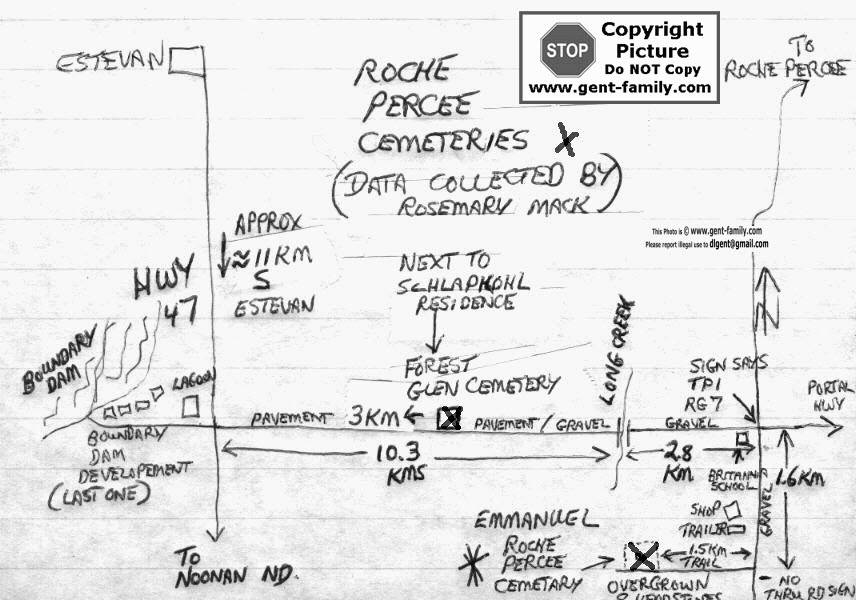 ESTEVAN
ROCHE
PERCEE
CEMETERIES X
(DATA COLLECTED BY
ROSEMARY MACK)
STOP
Copyright
Picture
Do NOT Copy
www.gent-family.com
TO
ROCHE PERCEE
This Photo is © www.gent-family.com
Please report illegal use to dlgent@gmail.com
APPROX
≈11KM
S
ESTEVAN
HWY
47
NEXT TO
SCHLAPKOHL
RESIDENCE
FOREST
GLEN CEMETERY
LONG CREEK
SIGN SAYS
TP1
RG7
PORTAL
HWY
BOUNDARY
DAM
LAGOON
PAVEMENT
3KM
PAVEMENT/GRAVEL
GRAVEL
BOUNDARY
DAM
DEVELOPEMENT
(LAST ONE)
10.3
KMS
2.8
KM
BRITANNIA
SCHOOL
1.6KM
GRAVEL
SHOP
TRAILER
1.5KM
TRAIL
TO
NOONAN ND.
EMMANUEL
ROCHE
PERCEE
CEMETARY
OVERGROWN
NO
THRU RD SIGN